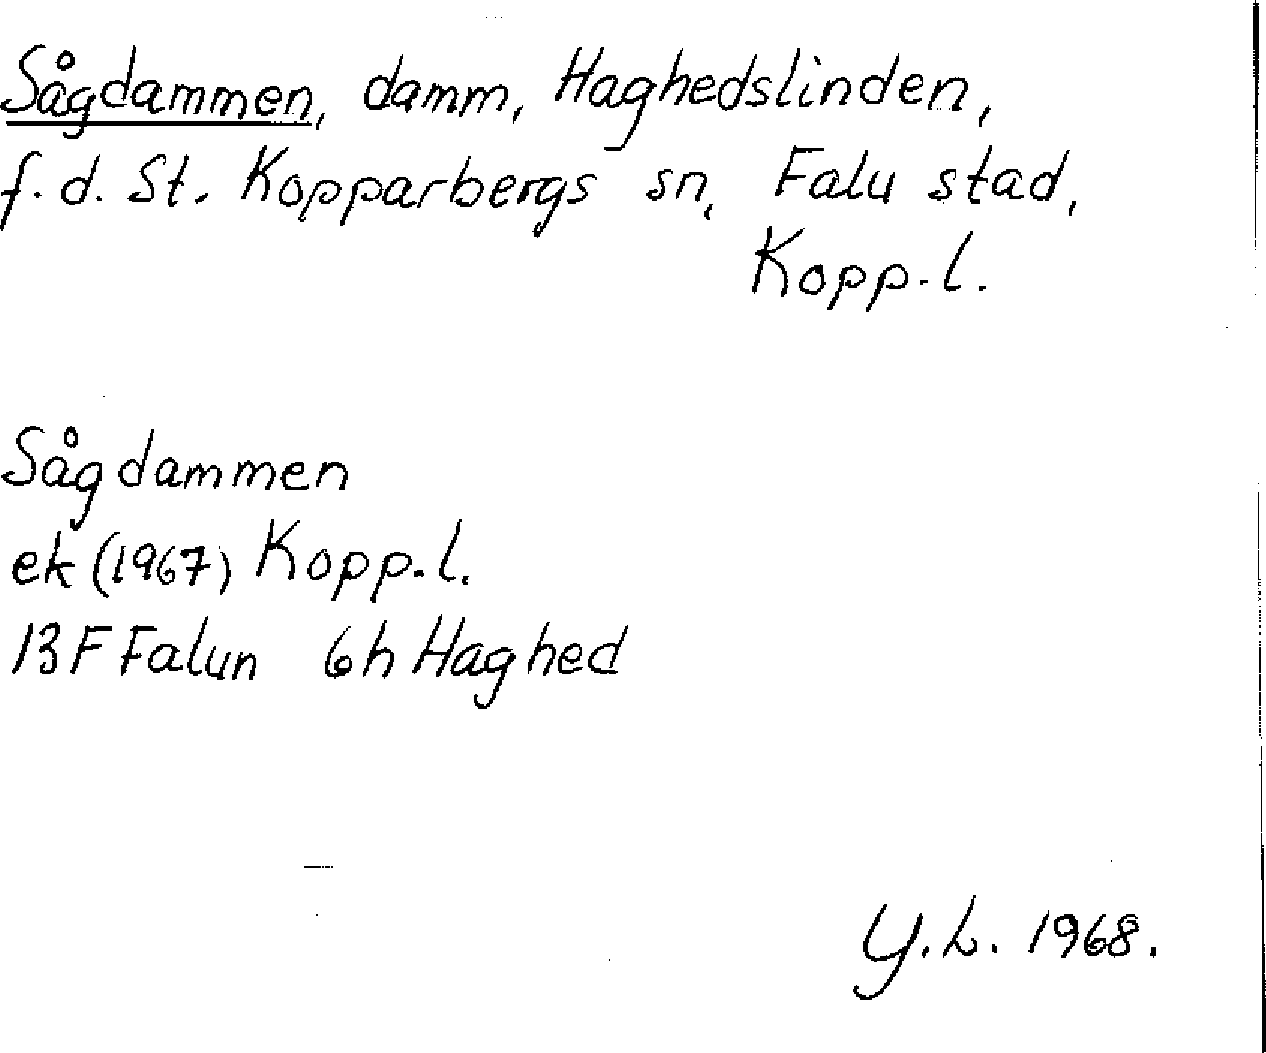 Sågdammen, damm, Haghedslinden,
f.d. St. Kopparbergs sn, Falu stad,
Kopp.l.
Sågdammen
ek (1967) Kopp.l.
13F Falun 6h Haghed
Y.L. 1968.